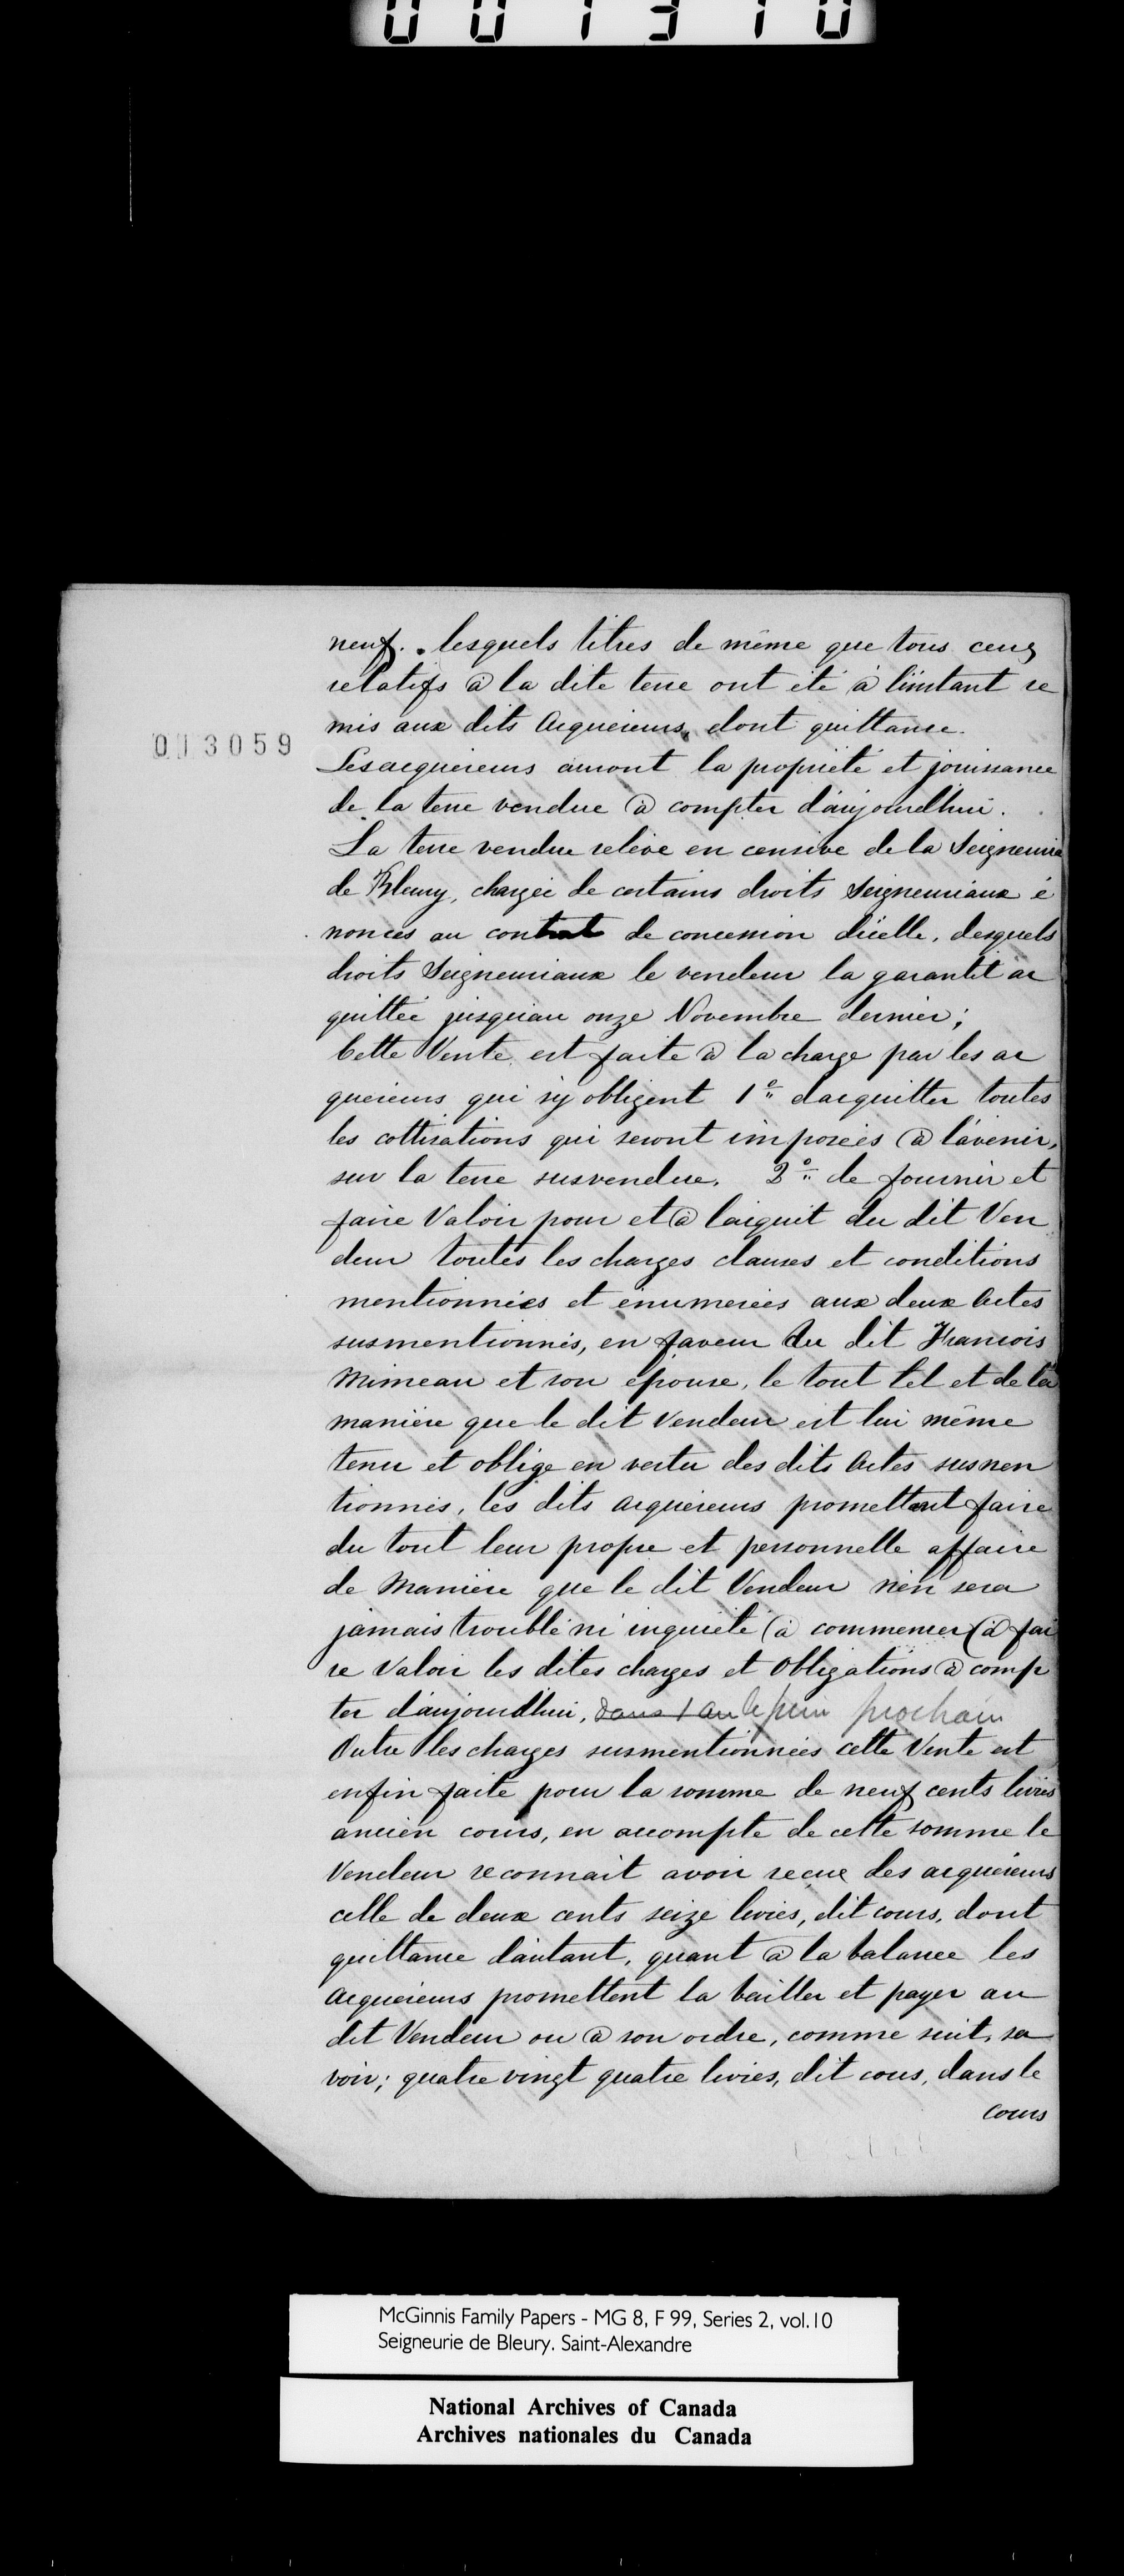 001310
013059
neuf. lesquels titres de même que tous ceux
relatifs à la dite terre ont été à l'instant re
mis aux dits Acquereurs, dont quittance.
Les acquereurs auront la propriété et jouissance
de la terre vendue à compter d'aujourdhui.
La terre vendue relève en censive de la Seigneurie
de Bleury, chargée de certains droits Seigneuriaux é
noncés au contrat de concession d'icelle, desquels
droits Seigneuriaux le vendeur la garantit ac
quittée jusqu'au onze Novembre dernier;
Cette Vente est faite à la charge par les ac
quereurs qui s'y obligent 1° d'acquitter toutes
les cottisations qui seront imposées à l'avenir,
sur la terre susvendue. 2° de fournir et
faire Valoir pour et à l'acquit du dit Ven
deur toutes les charges clauses et conditions
mentionnées et énumerées aux deux Actes
susmentionnés, en faveur du dit Francois
Mimeau et son épouse, le tout tel et de la
manière que le dit Vendeur est lui même
tenu et obligé en vertu des dits Actes susmen
tionnés, les dits acquereurs promettant faire
du tout leur propre et personnelle affaire
de Manière que le dit Vendeur n'en sera
jamais troublé ni inquiété à commencer à fai
re Valoir les dites charges et Obligations à comp
ter d'aujourdhui, dans 1 an le juin prochain
Outre les charges susmentionnées cette Vente est
enfin faite pour la somme de neuf cents livres
ancien cours, en accompte de cette somme le
Vendeur reconnait avoir recue des acquereurs
celle de deux cents seize livres, dit cours, dont
quittance d'autant, quant à la balance les
Acquereurs promettent la bailler et payer au
dit Vendeur ou à son ordre, comme suit, sa
voir; quatre vingt quatre livres, dit cours, dans le
cours
McGinnis Family Papers - MG 8, F 99, Series 2, vol.10
Seigneurie de Bleury. Saint-Alexandre
National Archives of Canada
Archives nationales du Canada